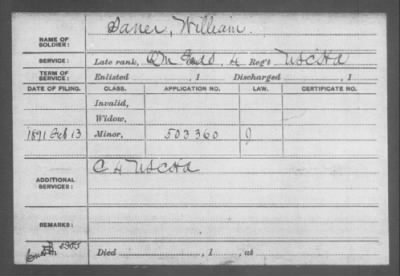 NAME OF SOLDIER: Saner, William
SERVICE: Late rank, 4 Reg't U S C H A
TERM OF SERVICE: Enlisted , 1 Discharged , 1
DATE OF FILING. CLASS. APPLICATION NO. LAW. CERTIFICATE NO.
Invalid,
Widow,
1891 Feb 13 Minor, 503360 J
ADDITIONAL SERVICES: C 4 U S C H A
REMARKS:
Died , 1 , at